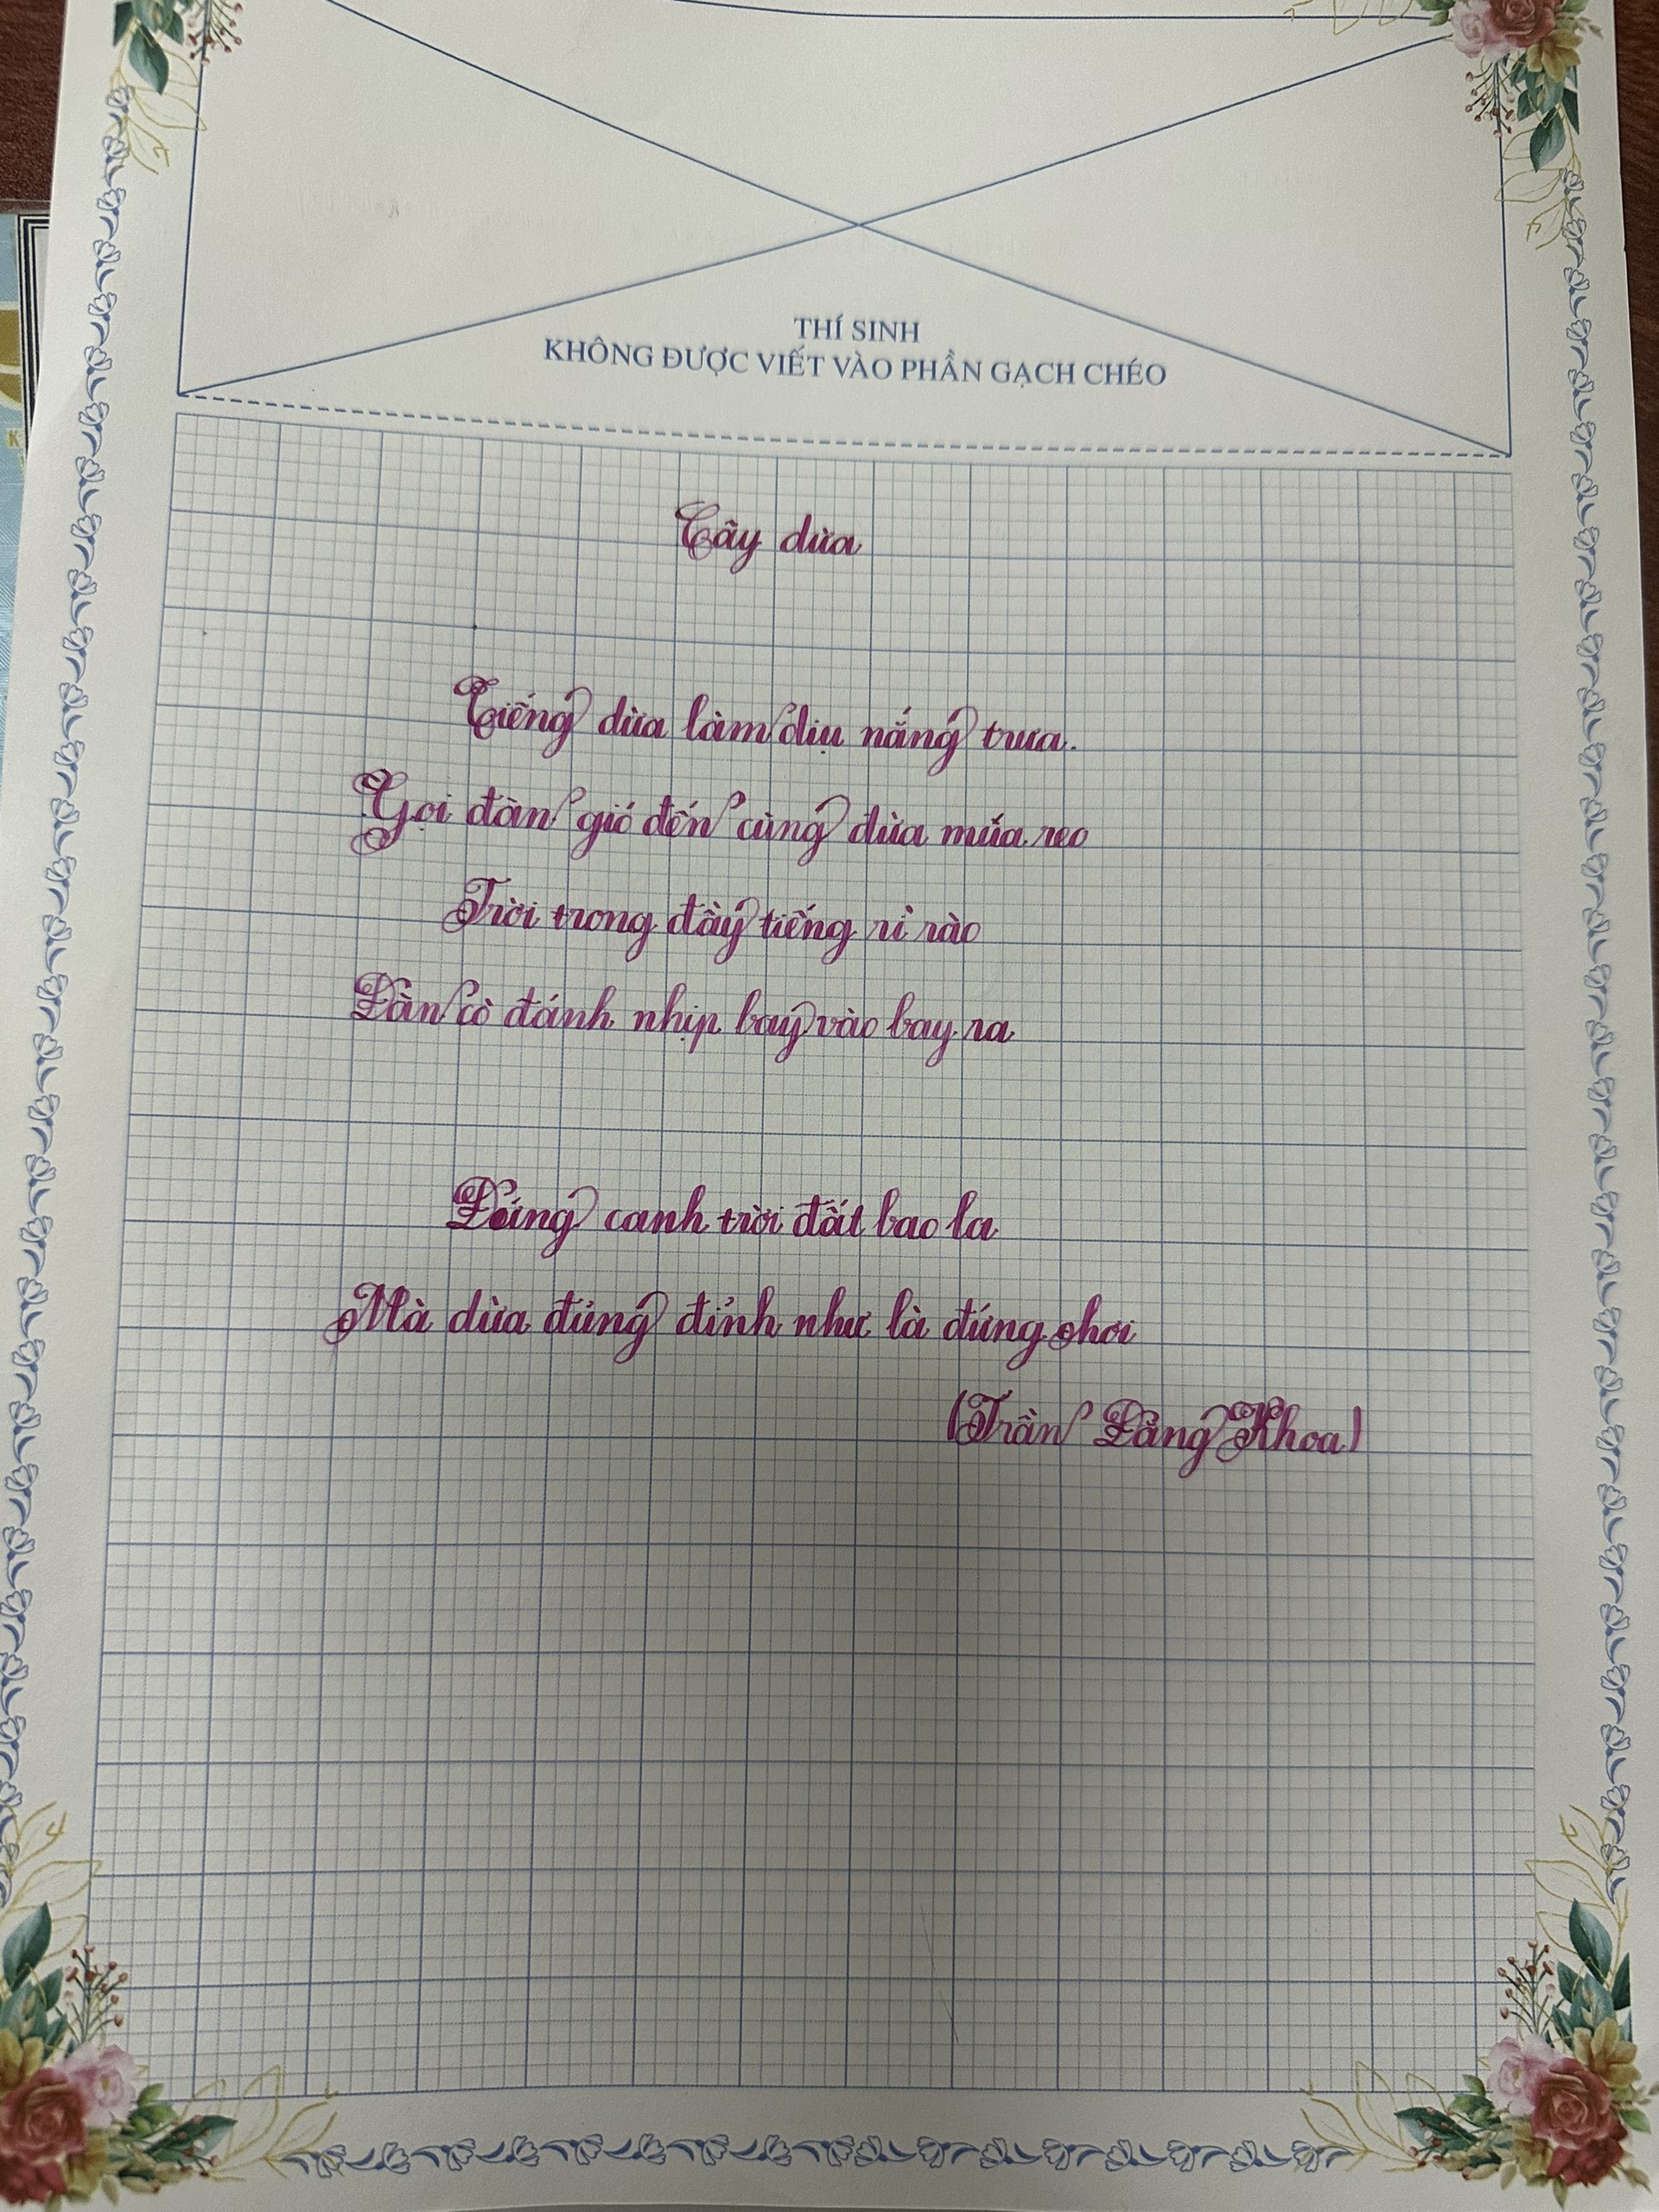 THÍ SINH
KHÔNG ĐƯỢC VIẾT VÀO PHẦN GẠCH CHÉO
Cây dừa
Tiếng dừa làm dịu nắng trưa.
Gọi đàn gió đến cùng dừa múa reo
Trời trong đầy tiếng rì rào
Đàn cò đánh nhịp bay vào bay ra
Đứng canh trời đất bao la
Mà dừa đủng đỉnh như là đứng chơi
(Trần Đăng Khoa)